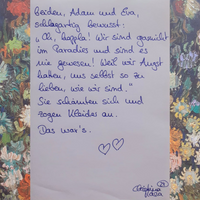 beiden, Adam und Eva,
schlagartig bewusst:
"Oh, hoppla! Wir sind garnicht
im Paradies und sind es
nie gewesen! Weil wir Angst
haben, uns selbst so zu
lieben, wie wir sind."
Sie schämten sich und
zogen Kleider an.
Das war's.